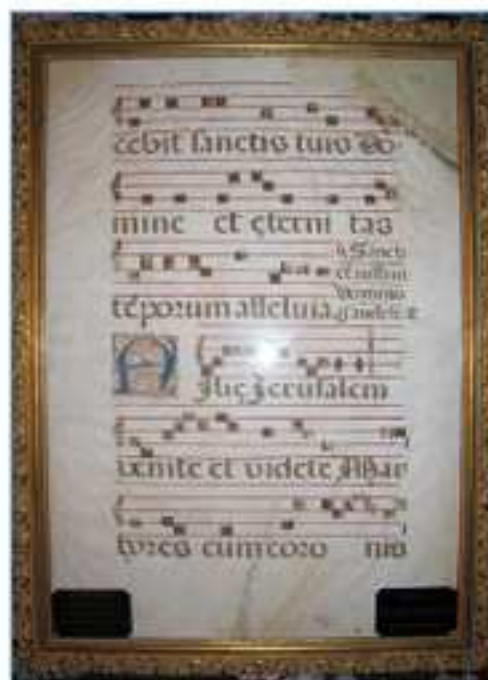 cebit sanctis tuis Do-
mine et ęterni tas
tēporum alleluia
Sancti
et iusti in
domino
gaudete
Filię Jerusalem
venite et videte Mar
tyres cum coro nis